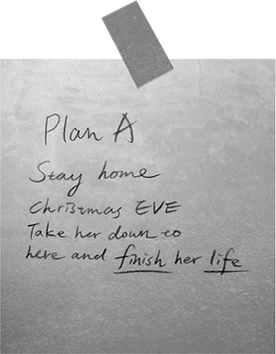 Plan A
Stay home
Christmas EVE
Take her down to
here and finish her life